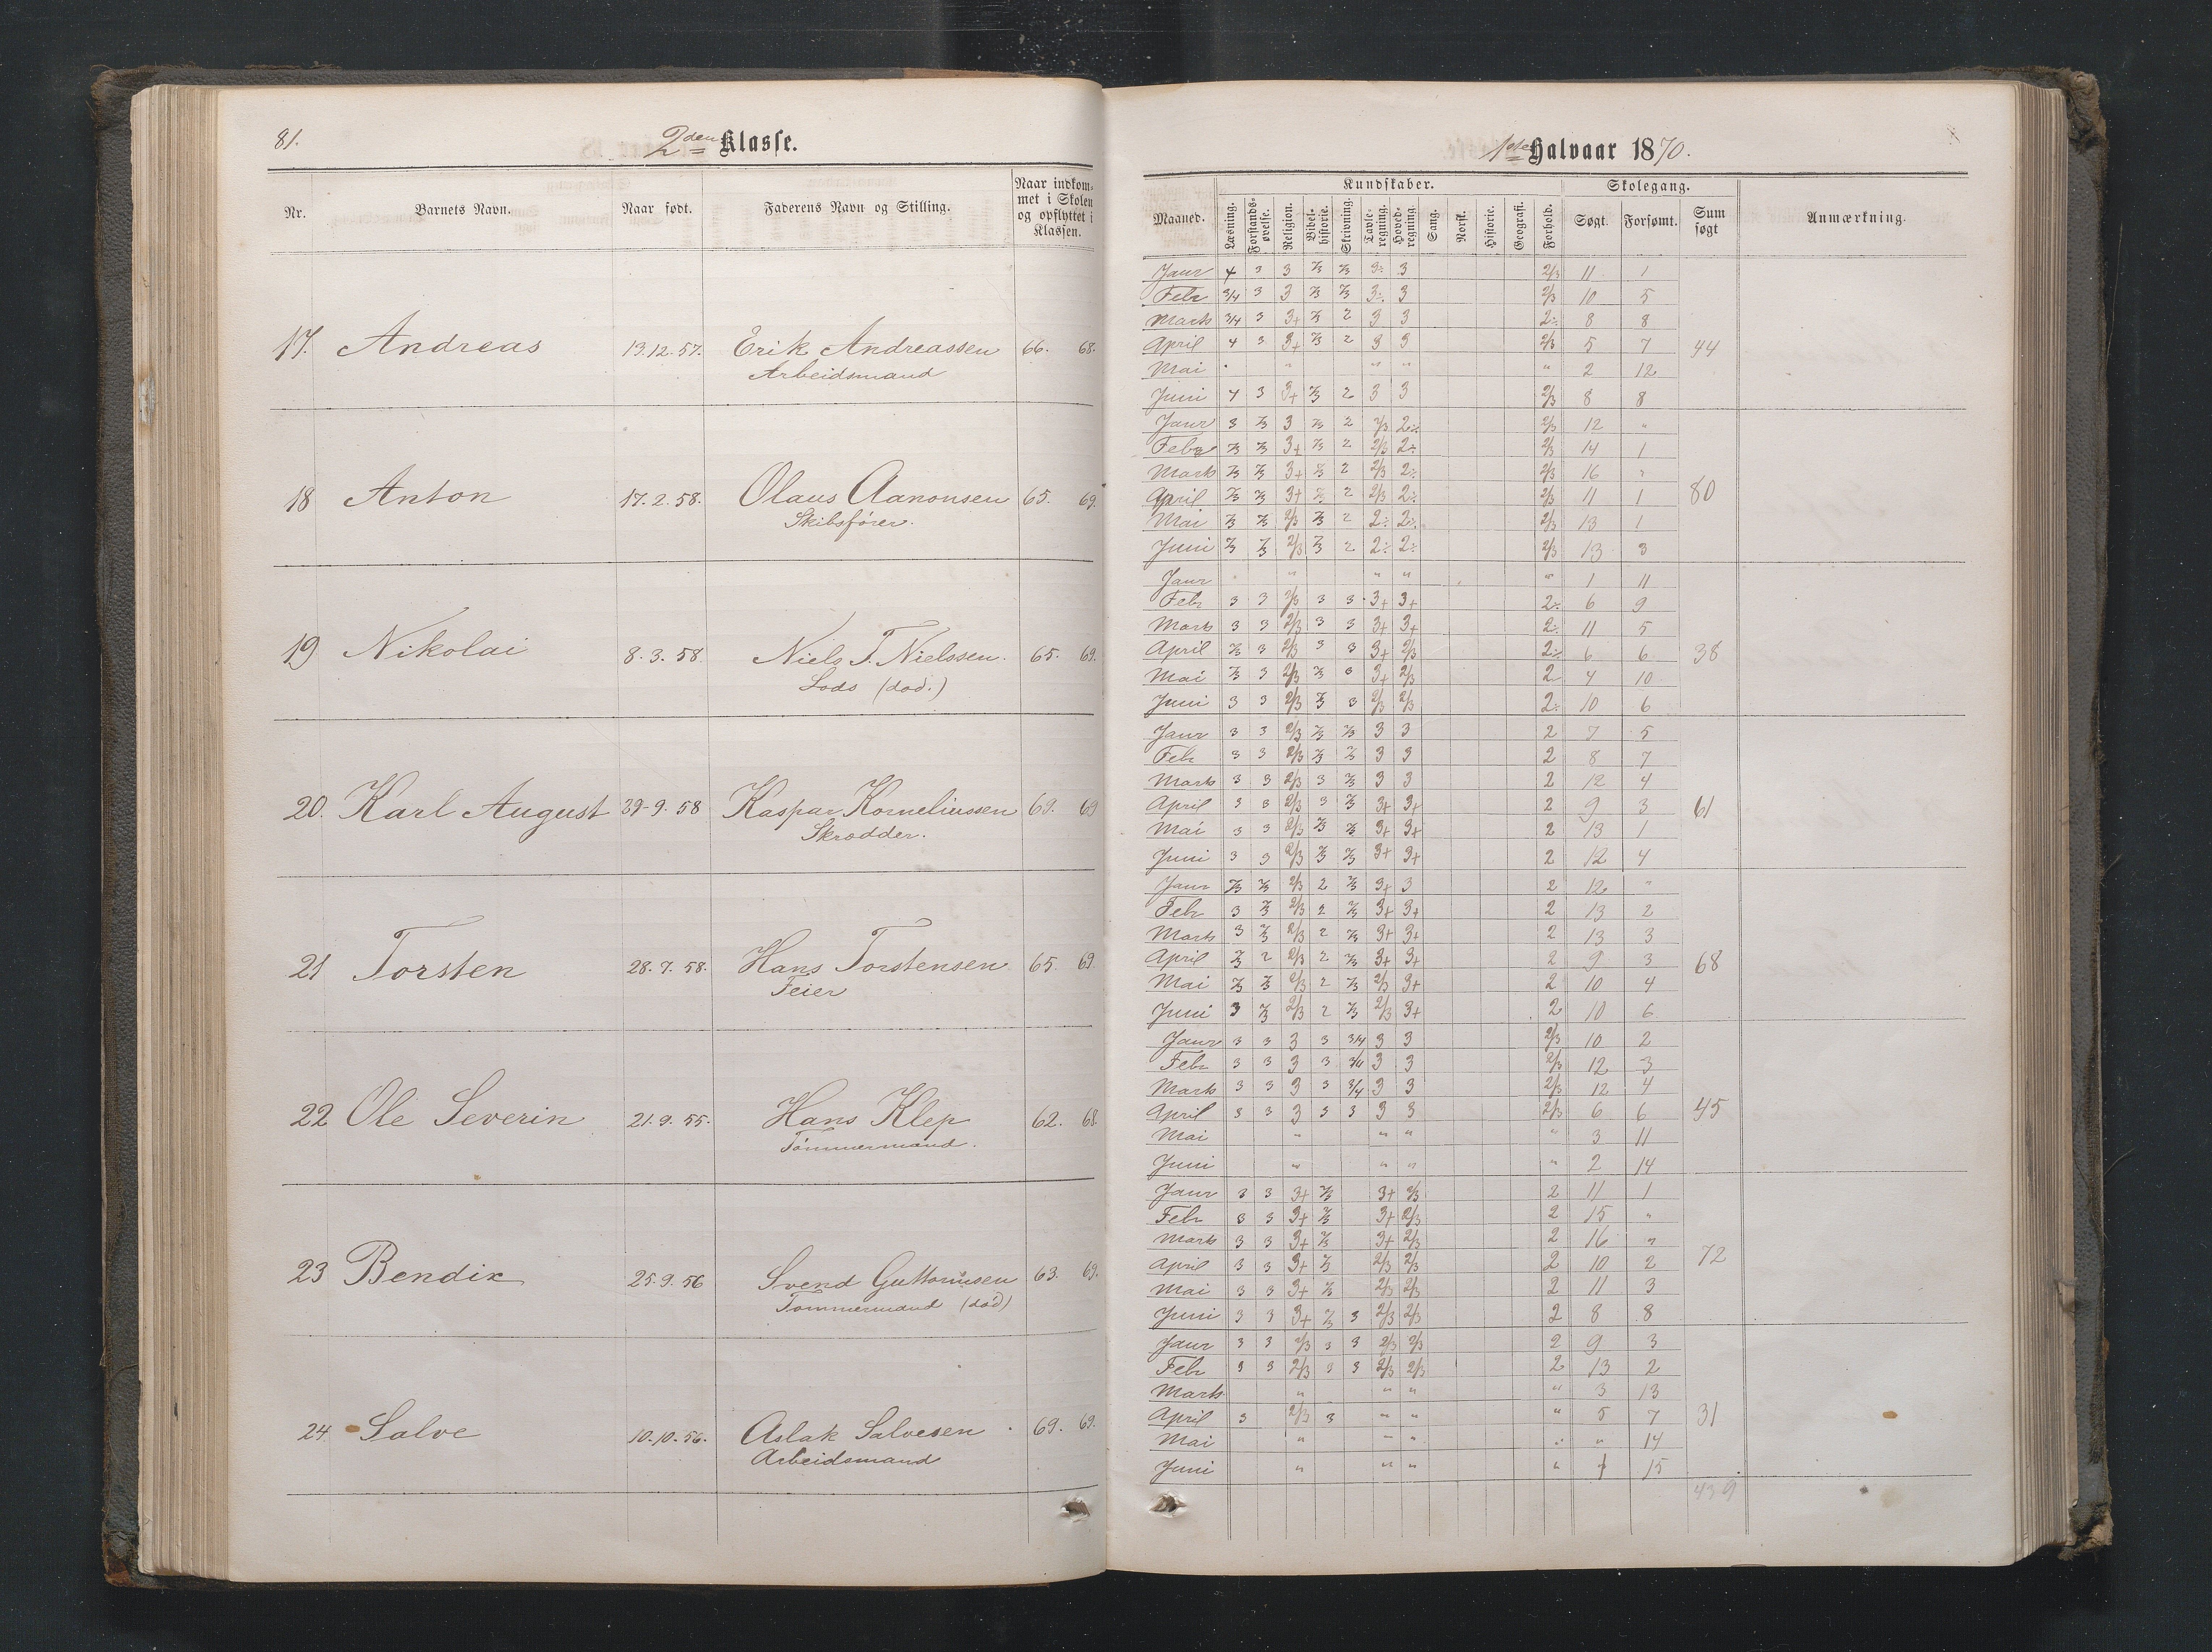 81.
2den Klasse.
Nr. Barnets Navn. Naar født. Faderens Navn og Stilling. Naar indkom-
met i Skolen
og opflyttet i
Klassen.
17. Andreas 13.12.57. Erik Andreassen 66. 68.
Arbeidsmand
18 Anton 17.2.58. Olaus Aanonsen 65. 69.
Skibsfører.
19 Nikolai 8.3.58. Niels T. Nielssen. 65. 69.
Lods (død.)
20. Karl August 9.58 Kaspar Korneliussen 69. 69
Skrædder.
21 Torsten 28.7.58. Hans Torstensen 65. 69.
Feier
22 Ole Severin 21.9.55. Hans Klep 62. 68.
Tømmermand.
23 Bendix 25.9.56 Svend Guttormsen 63. 69.
Tømmermand (død)
24 Salve 10.10.56. Aslak Salvesen 69. 69.
Arbeidsmand
1ste Halvaar 1870.
Kundskaber. Skolegang.
Maaned. Læsning. Forstands-øvelse. Religion. Bibel-historie. Skrivning. Tavle-regning. Hoved-regning. Sang. Norsk. Historie. Geografi. Forhold. Søgt. Forsømt. Sum søgt Anmærkning.
Janr 4 3 3 2/3 2/3 3÷ 3 2/3 11 1
Febr 3/4 3 3 2/3 2/3 3÷ 3 2/3 10 5
Marts 3/4 3 3+ 2/3 2 3 3 2÷ 8 8
April 4 3 3+ 2/3 2 3 3 2/3 5 7 44
Mai " " " " 2 12
Juni 4 3 3+ 2/3 2 3 3 2/3 8 8
Janr 3 2/3 3 2/3 2 2/3 2÷ 2/3 12 "
Febr 2/3 2/3 3+ 2/3 2 2/3 2÷ 2/3 14 1
Marts 2/3 2/3 3+ 2/3 2 2/3 2÷ 2/3 16 "
April 2/3 2/3 3+ 2/3 2 2/3 2÷ 2/3 11 1 80
Mai 2/3 2/3 2/3 2/3 2 2÷ 2÷ 2/3 13 1
Juni 2/3 2/3 2/3 2/3 2 2÷ 2÷ 2/3 13 3
Janr " " " " 1 11
Febr 3 3 2/3 3 3 3+ 3+ 2÷ 6 9
Marts 3 3 2/3 3 3 3+ 3+ 2÷ 11 5
April 2/3 3 2/3 3 3 3+ 2/3 2÷ 6 6 38
Mai 2/3 3 2/3 2/3 3 3+ 2/3 2 4 10
Juni 3 3 2/3 2/3 3 2/3 2/3 2÷ 10 6
Janr 3 3 2/3 2/3 2/3 3 3 2 7 5
Feb 3 3 2/3 2/3 2/3 3 3 2 8 7
Marts 3 3 2/3 3 2/3 3 3 2 12 4
April 3 3 2/3 3 2/3 3+ 3+ 2 9 3 61
Mai 3 3 2/3 2/3 2/3 3+ 3+ 2 13 1
Juni 3 3 2/3 2/3 2/3 3+ 3+ 2 12 4
Janr 2/3 2/3 2/3 2 2/3 3+ 3 2 12 "
Febr 3 2/3 2/3 2 2/3 3+ 3+ 2 13 2
Marts 3 2/3 2/3 2 2/3 3+ 3+ 2 13 3
April 2/3 2 2/3 2 2/3 3+ 3+ 2 9 3 68
Mai 2/3 2/3 2/3 2 2/3 2/3 3+ 2 10 4
Juni 3 2/3 2/3 2 2/3 2/3 3+ 2 10 6
Janr 3 3 3 3 3/4 3 3 2/3 10 2
Febr 3 3 3 3 3/4 3 3 2/3 12 3
Marts 3 3 3 3 3/4 3 3 2/3 12 4
April 3 3 3 3 3 3 3 2/3 6 6 45
Mai " " " " 3 11
Juni " " " " 2 14
Janr 3 3 3+ 2/3 3+ 2/3 2 11 1
Febr 3 3 3+ 2/3 3+ 2/3 2 15 "
Marts 3 3 3+ 2/3 3+ 2/3 2 16 "
April 3 3 3+ 2/3 2/3 2/3 2 10 2 72
Mai 3 3 3+ 2/3 2/3 2/3 2 11 3
Juni 3 3 3+ 2/3 3 2/3 2/3 2 8 8
Janr 3 3 2/3 3 3 2/3 2/3 2 9 3
Febr 3 3 2/3 3 3 2/3 2/3 2 13 2
Marts " " " " 3 13
April 3 2/3 3 " " " 5 7 31
Mai " " " " " 14
Juni " " " " 1 15
439